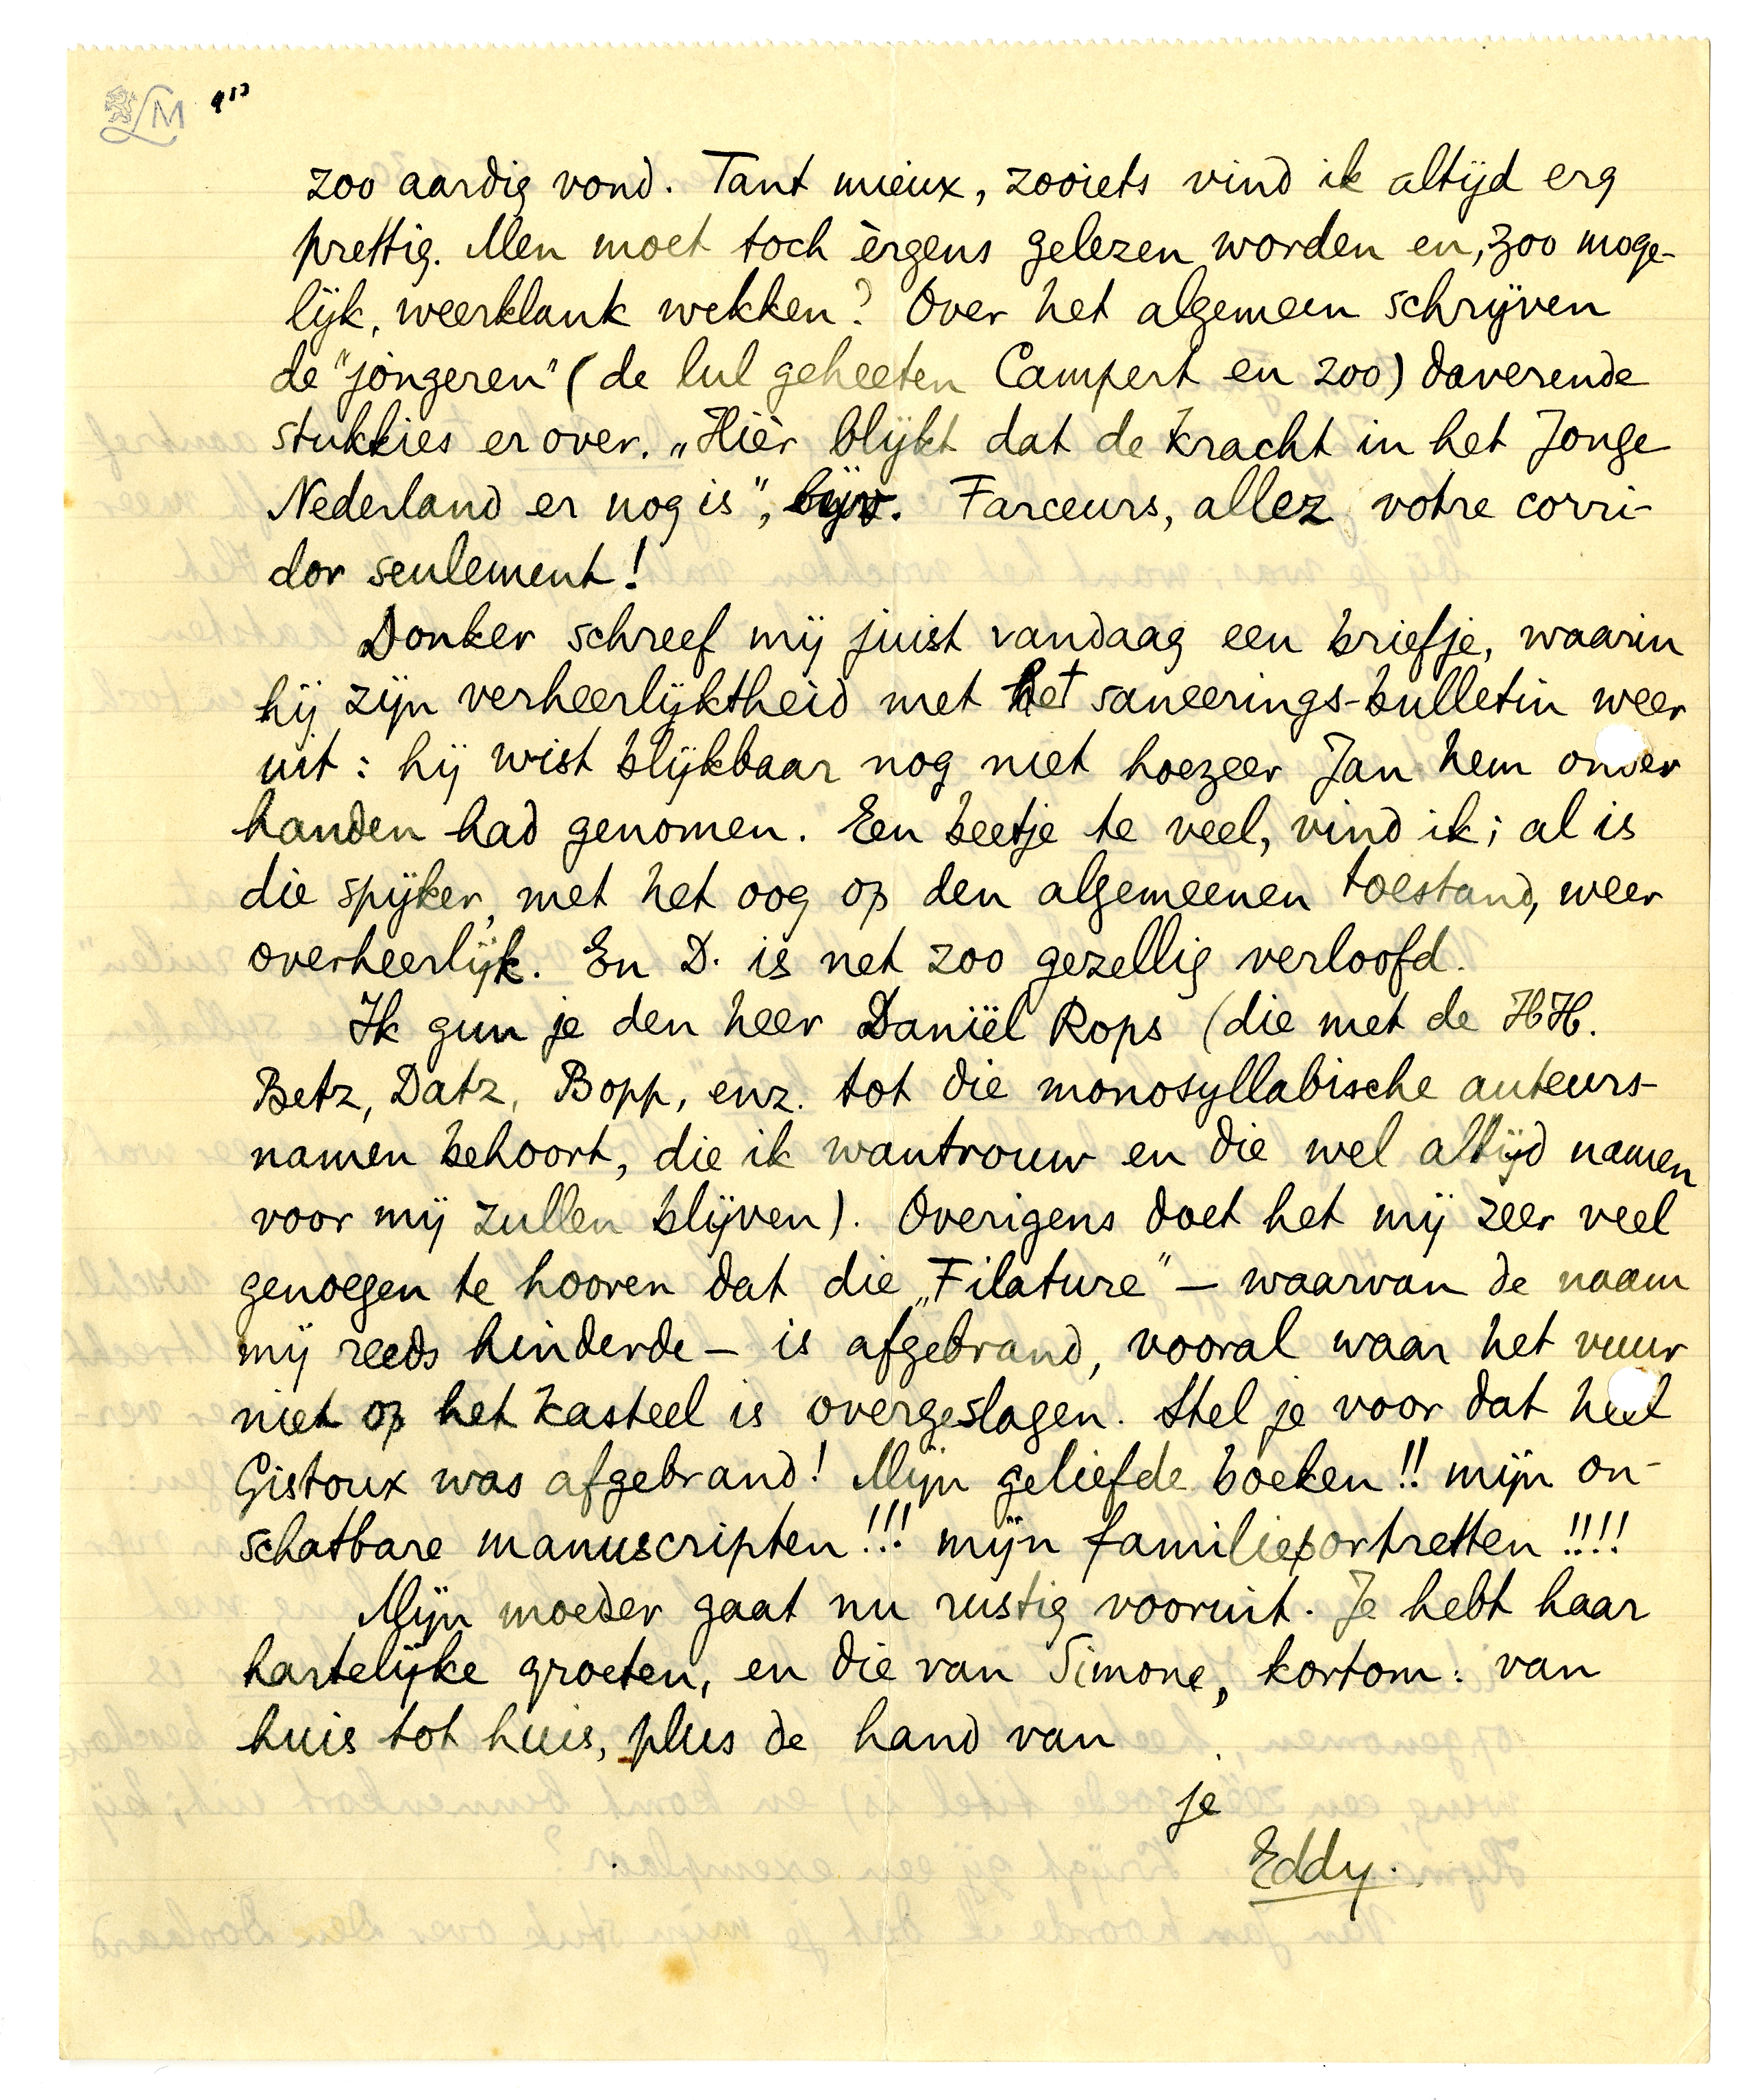 LM
zoo aardig vond. Tant mieux, zooiets vind ik altijd erg
prettig. Men moet toch èrgens gelezen worden en, zoo moge-
lijk, weerklank wekken? Over het algemeen schrijven
de "jongeren" (de lul geheeten Campert en zoo) daverende
stukkies erover. „Hièr blijkt dat de kracht in het Jonge
Nederland er nog is", bijv. Farceurs, allez votre corri-
dor seulement!
Donker schreef mij juist vandaag een briefje, waarin
hij zijn verheerlijktheid met het saneerings-bulletin weer
uit: hij wist blijkbaar nog niet hoezeer Jan hem onder
handen had genomen. Een beetje te veel, vind ik; al is
die spijker, met het oog op den algemeenen toestand, weer
overheerlijk. En D. is net zoo gezellig verloofd.
Ik gun je den heer Daniël Rops (die met de HH.
Betz, Datz, Bopp, enz. tot die monosyllabische auteurs-
namen behoort, die ik wantrouw en die wel altijd namen
voor mij zullen blijven). Overigens doet het mij zeer veel
genoegen te hooren dat die „Filature" — waarvan de naam
mij reeds hinderde — is afgebrand, vooral waar het vuur
niet op het kasteel is overgeslagen. Stel je voor dat heel
Gistoux was afgebrand! Mijn geliefde boeken!! mijn on-
schatbare manuscripten!!! mijn familieportretten!!!!
Mijn moeder gaat nu rustig vooruit. Je hebt haar
hartelijke groeten, en die van Simone, kortom: van
huis tot huis, plus de hand van
je
Eddy.